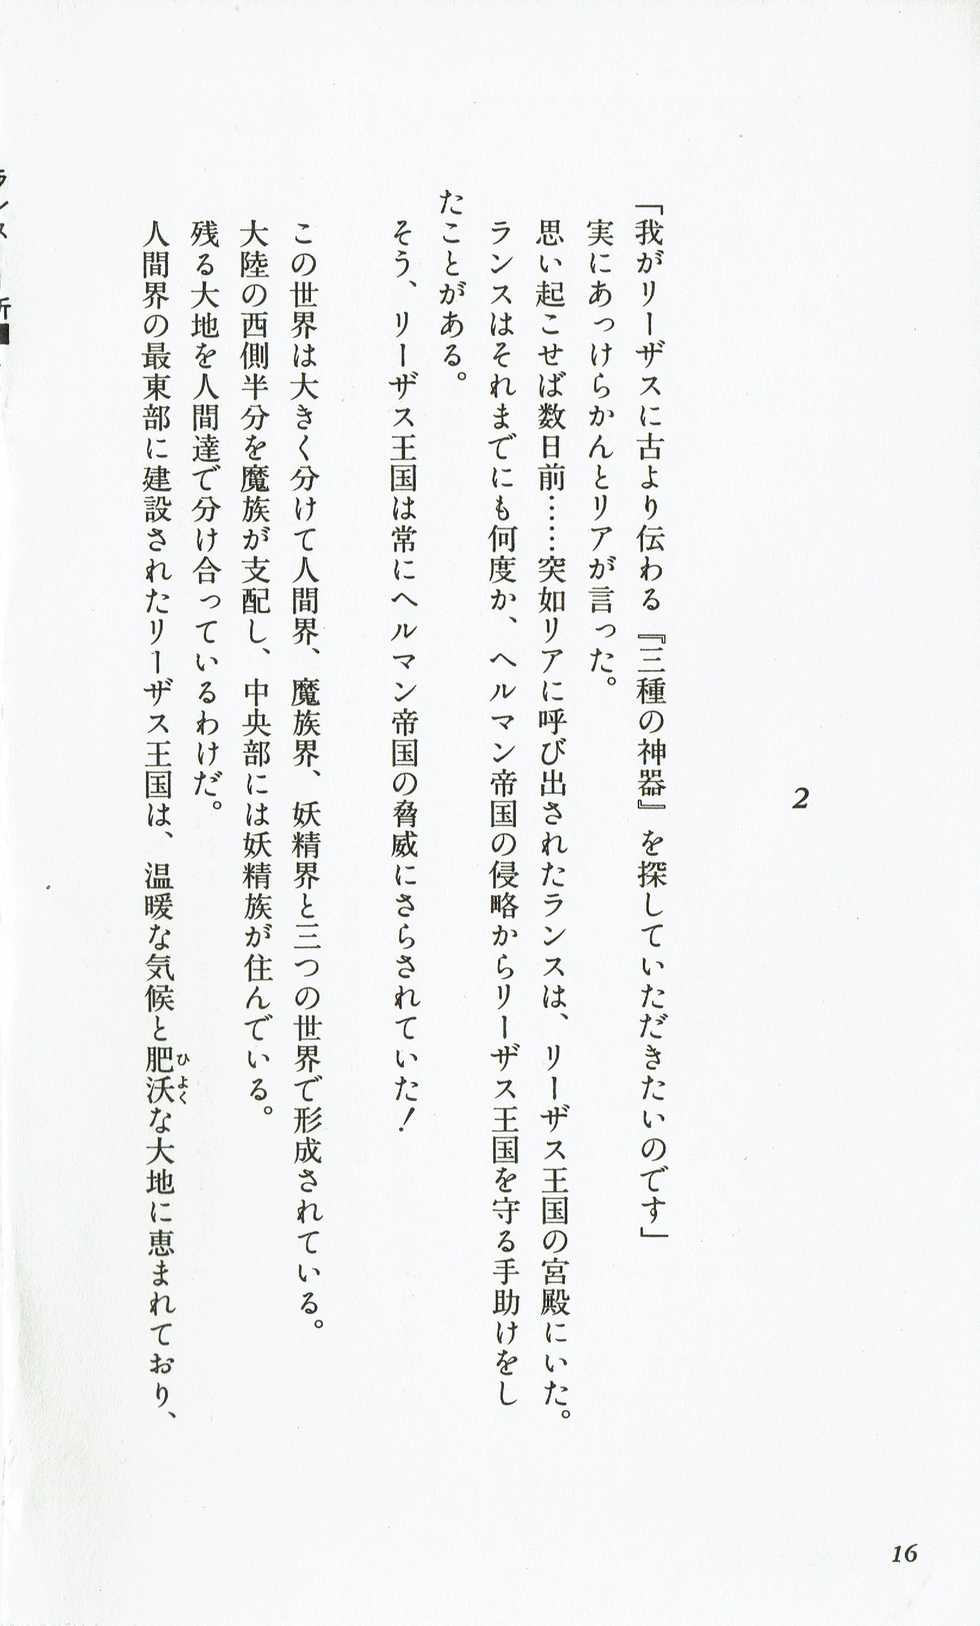 2
「我がリーザスに古より伝わる『三種の神器』を探していただきたいのです」
実にあっけらかんとリアが言った。
思い起こせば数日前……突如リアに呼び出されたランスは、リーザス王国の宮殿にいた。
ランスはそれまでにも何度か、ヘルマン帝国の侵略からリーザス王国を守る手助けをし
たことがある。
そう、リーザ王国は常にヘルマン帝国の脅威にさらされていた！
この世界は大きく分けて人間界、魔族界、妖精界と三つの世界で形成されている。
大陸の西側半分を魔族が支配し、中央部には妖精族が住んでいる。
残る大地を人間達で分け合っているわけだ。
人間界の最東部に建設されたリーザス王国は、温暖な気候と肥沃な大地に恵まれており、
ひよく
16